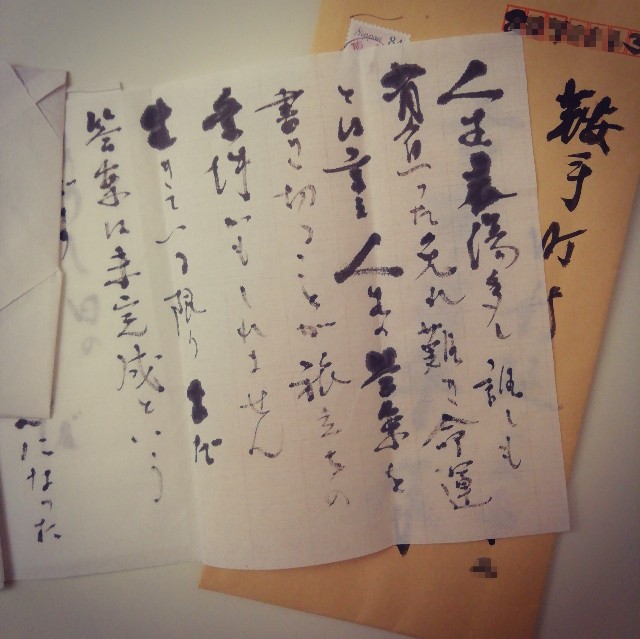 人生哀傷多し 誰しも
背負った免れ難き命運
とは言え 人生の答案を
書き切ることが旅立ちの
条件かもしれません
生きている限り まだ
答案は未完成という
になった
鞍手町